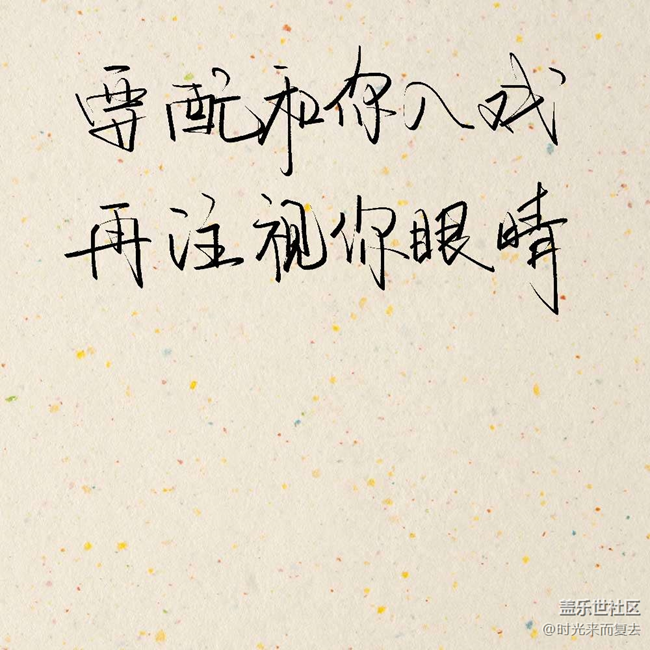 要和你入戏
再注视你眼睛
盖乐世社区
@时光来而复去